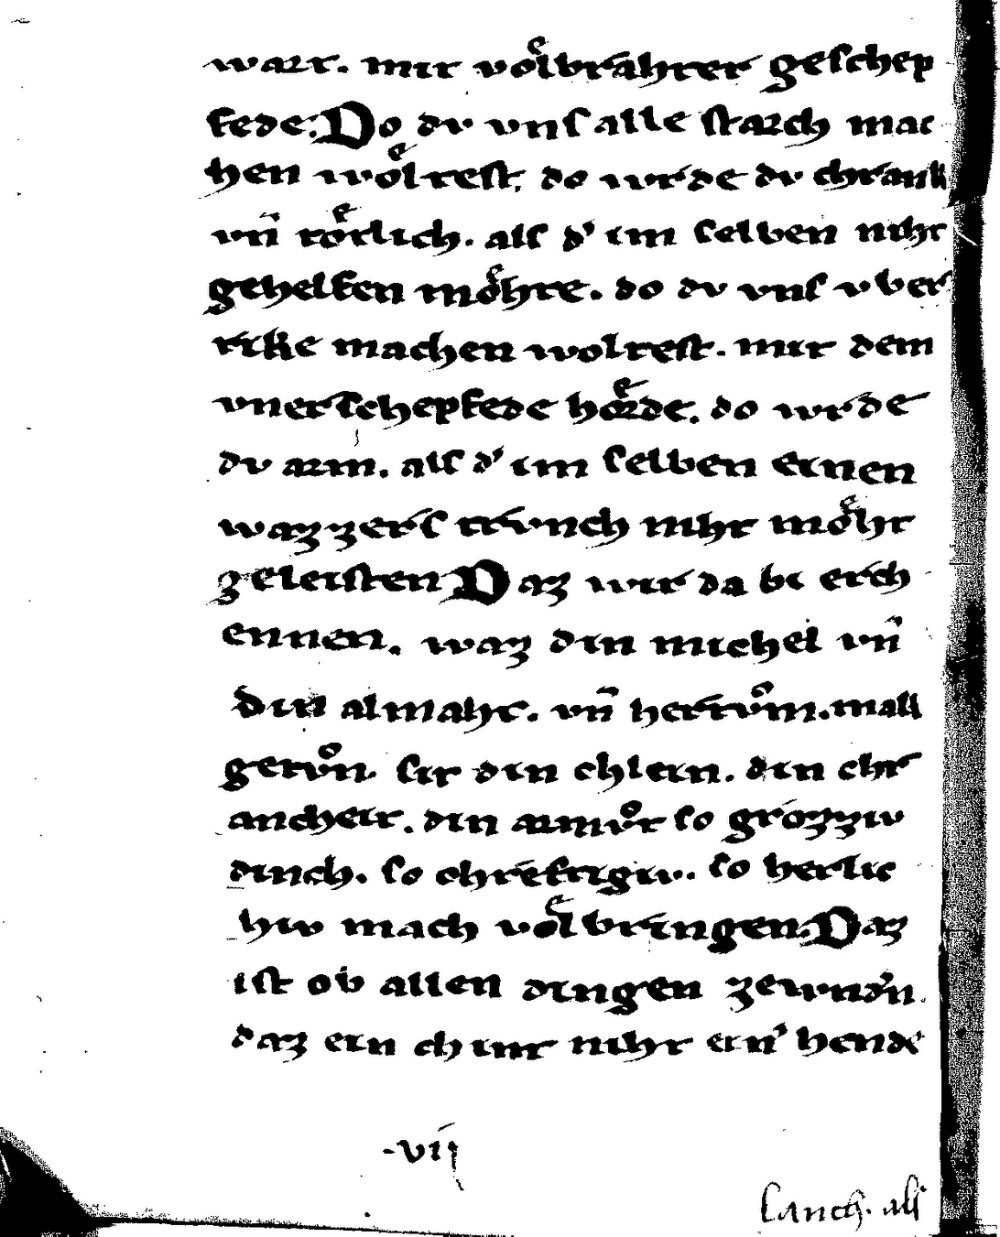 wart. mit voͤlbrahter geschep
fede: Do dv vnſ alle ſtarch mac
hen woͤlteſt. do wrde dv chranh
vn̄ toͤtlich. alſ d' im ſelben niht
gehelfen moͤhte. do dv vnſ v ber
rike machen wolteſt. mit dem
vnerſchepfede hoͤrde. do wrde
dv arm. alſ d' im ſelben einen
wazzerſ trvnch niht moͤht
geleiſten Daz wir da bi erch
ennen. waz din michel vn̄
din almaht. vn̄ herrvͦm. mall
getvͦn. ſit din chlein. din chr
ancheit. din armvͦt ſo grozziv
dinch. ſo chreftigiv. ſo herlic
hiv mach voͤlbringen. Daz
iſt ob allen dingen zewnd'n.
daz ein chint niht ein' hende
·vij
lanch. alſ